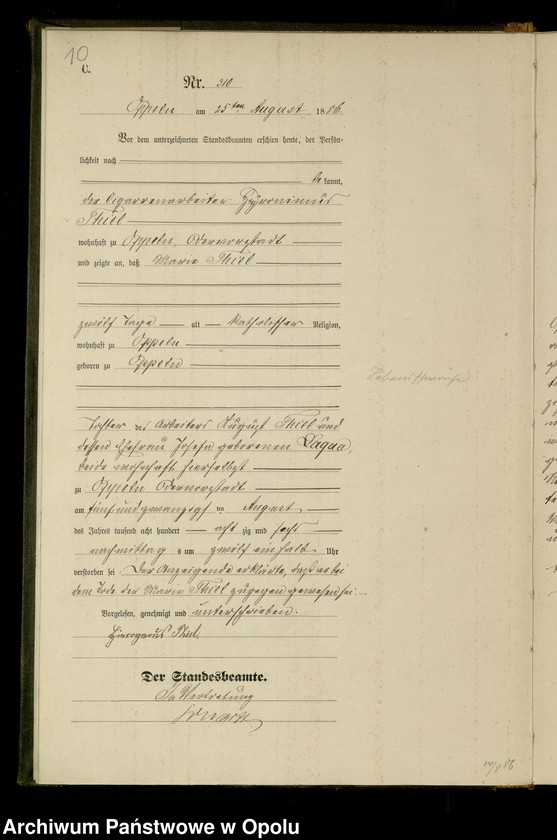 10
C.
Nr. 310
Oppeln am 25ten August 1886.
Vor dem unterzeichneten Standesbeamten erschien heute, der Persön-
lichkeit nach
bekannt,
der Cigarrenarbeiter Hyronimus
Thiel
wohnhaft zu Oppeln, Odervorstadt
und zeigte an, daß Marie Thiel
zwölf Tage alt katholischer Religion,
wohnhaft zu Oppeln
geboren zu Oppeln
Lebensschwäche
Tochter des Arbeiters August Thiel und
dessen Ehefrau Josefa geborenen Laqua,
beide wohnhaft hierselbst
zu Oppeln Odervorstadt
am fünfundzwanzigsten August
des Jahres tausend acht hundert achtzig und sechs
nachmittags um zwölf einhalb Uhr
verstorben sei. Der Anzeigende erklärte, daß er bei
dem Tode der Marie Thiel zugegen gewesen sei.
Vorgelesen, genehmigt und unterschrieben.
Thiel
Der Standesbeamte.
In Vertretung
Archiwum Państwowe w Opolu